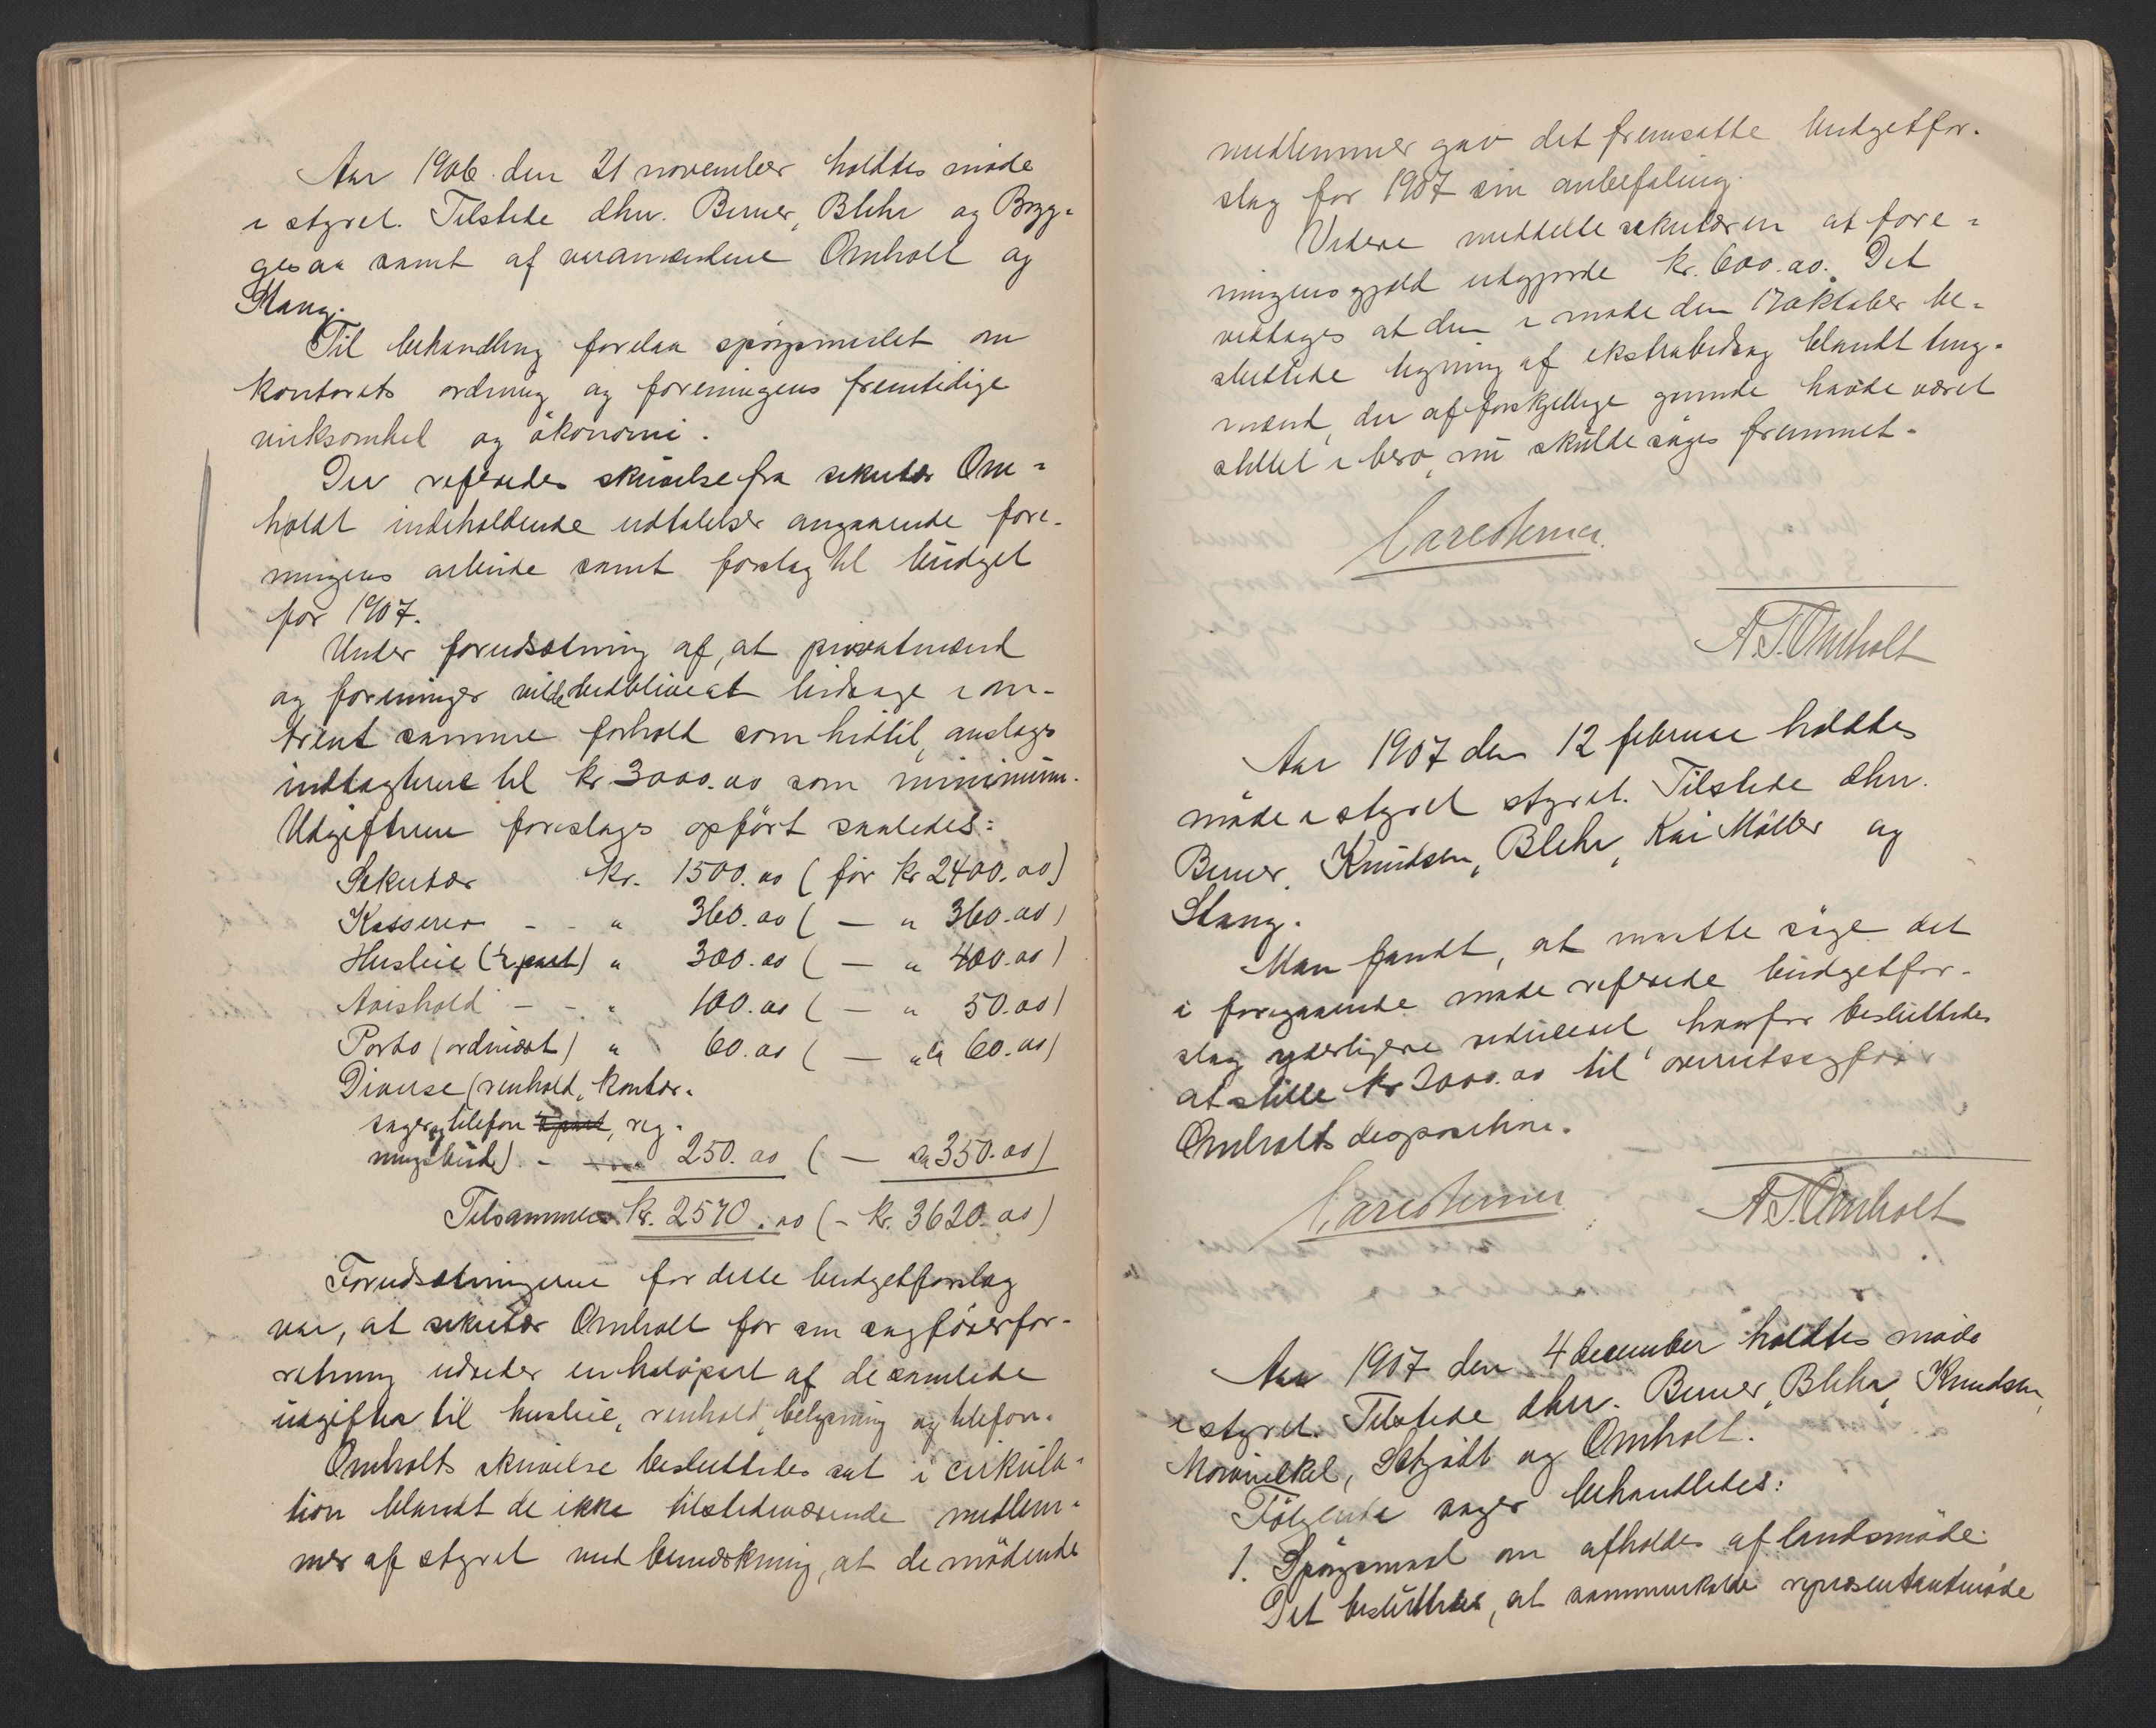 Aar 1906 den 21 november holdtes møde
i styret. Tilstede dhrr. Berner, Blehr og Bryg-
gesaa samt af varamændene Omholt og
Stang.
Til behandling forelaa spörgsmaalet om
kontorets ordning og foreningens fremtidige
virksomhed og ökonomi.
Der refereredes skrivelse fra sekretær Om-
holdt indeholdende udtalelser angaaende fore-
ningens arbeide samt forslag til budget
for 1907.
Under forudsætning af, at privatmænd
og foreninger vilde vedblive at bidrage i om-
trent samme forhold som hidtil, ansloges
indtægterne til kr 3000.00 som minimum.
Udgifterne foreslages opfört saaledes:
Sekretær kr. 1500.00 (før kr 2400.00)
Kasserer - - " 360.00 ( — " 360.00)
Husleie (½ part) " 300.00 ( — " 400.00)
Avishold - - " 100.00 ( — " 50.00)
Porto (ordinært) " 60.00 ( — " 60.00)
Diverse (renhold, kontor-
sager, telefon ½ part, reg-
ningsbud) - 250.00 ( — " 350.00)
Tilsammen kr. 2570.00 (- kr. 3620.00)
Forudsætningerne for dette budgetforslag
var, at sekretær Omholt for sin sagförerfor-
retning udreder en halvpart af de samlede
udgifter til husleie, renhold, belysning og telefon.
Omholts skrivelse besluttedes sat i cirkula-
tion blandt de ikke tilstedeværende medlem-
mer af styret med bemærkning, at de mödende
medlemmer gav det fremsatte budgetfor-
slag for 1907 sin anbefaling.
Videre meddelte sekretæren at fore-
ningens gjæld udgjorde kr. 600.00. Det
vedtages at den i møde den 17 oktober be-
sluttede tegning af ekstrabidrag blandt ting-
mænd, der af forskjellige grunde havde været
stillet i bero, nu skulde söges fremmet.
Carl Berner.
A. T. Omholt
Aar 1907 den 12 februar holdtes
möde i styret styret. Tilstede dhrr.
Berner, Knudsen, Blehr, Kai Möller og
Stang.
Man fandt, at maatte söge det
i foregaaende møde refererede budgetfor-
slag yderligere reduceret, hvorfor besluttedes
at stille kr 2000.00 til overretssagförer
Omholts disposition.
Carl Berner
A. T. Omholt
Aar 1907 den 4 december holdtes möde
i styret. Tilstede dhrr. Berner, Blehr, Knudsen,
Mowinckel, Schjödt og Omholt.
Fölgende sager behandledes:
1. Spörgsmaal om afholdes af landsmöde.
Det besluttedes, at sammenkalde representantmöde